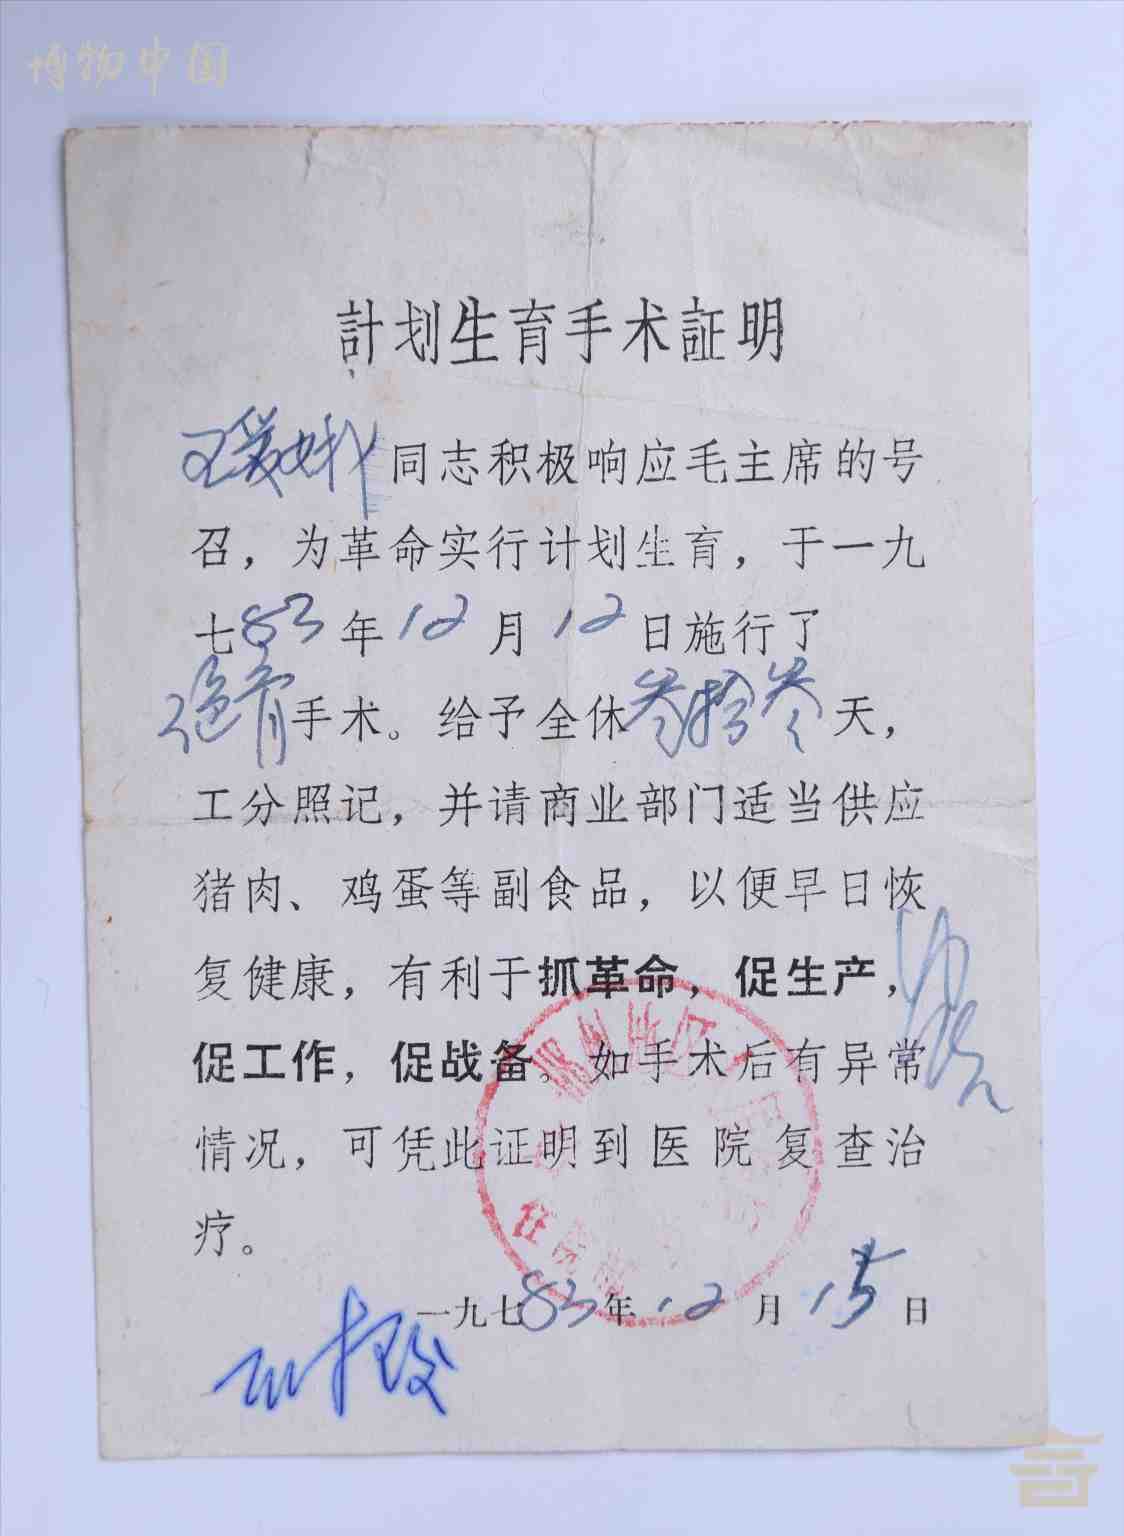 博物中国
計划生育手术証明
王爱娥同志积极响应毛主席的号
召，为革命实行计划生育，于一九
七83年12月12日施行了
绝育手术。给予全休叁拾叁天，
工分照记，并请商业部门适当供应
猪肉、鸡蛋等副食品，以便早日恢
复健康，有利于抓革命，促生产，
促工作，促战备。如手术后有异常
情况，可凭此证明到医院复查治
疗。
一九七83年12月15日